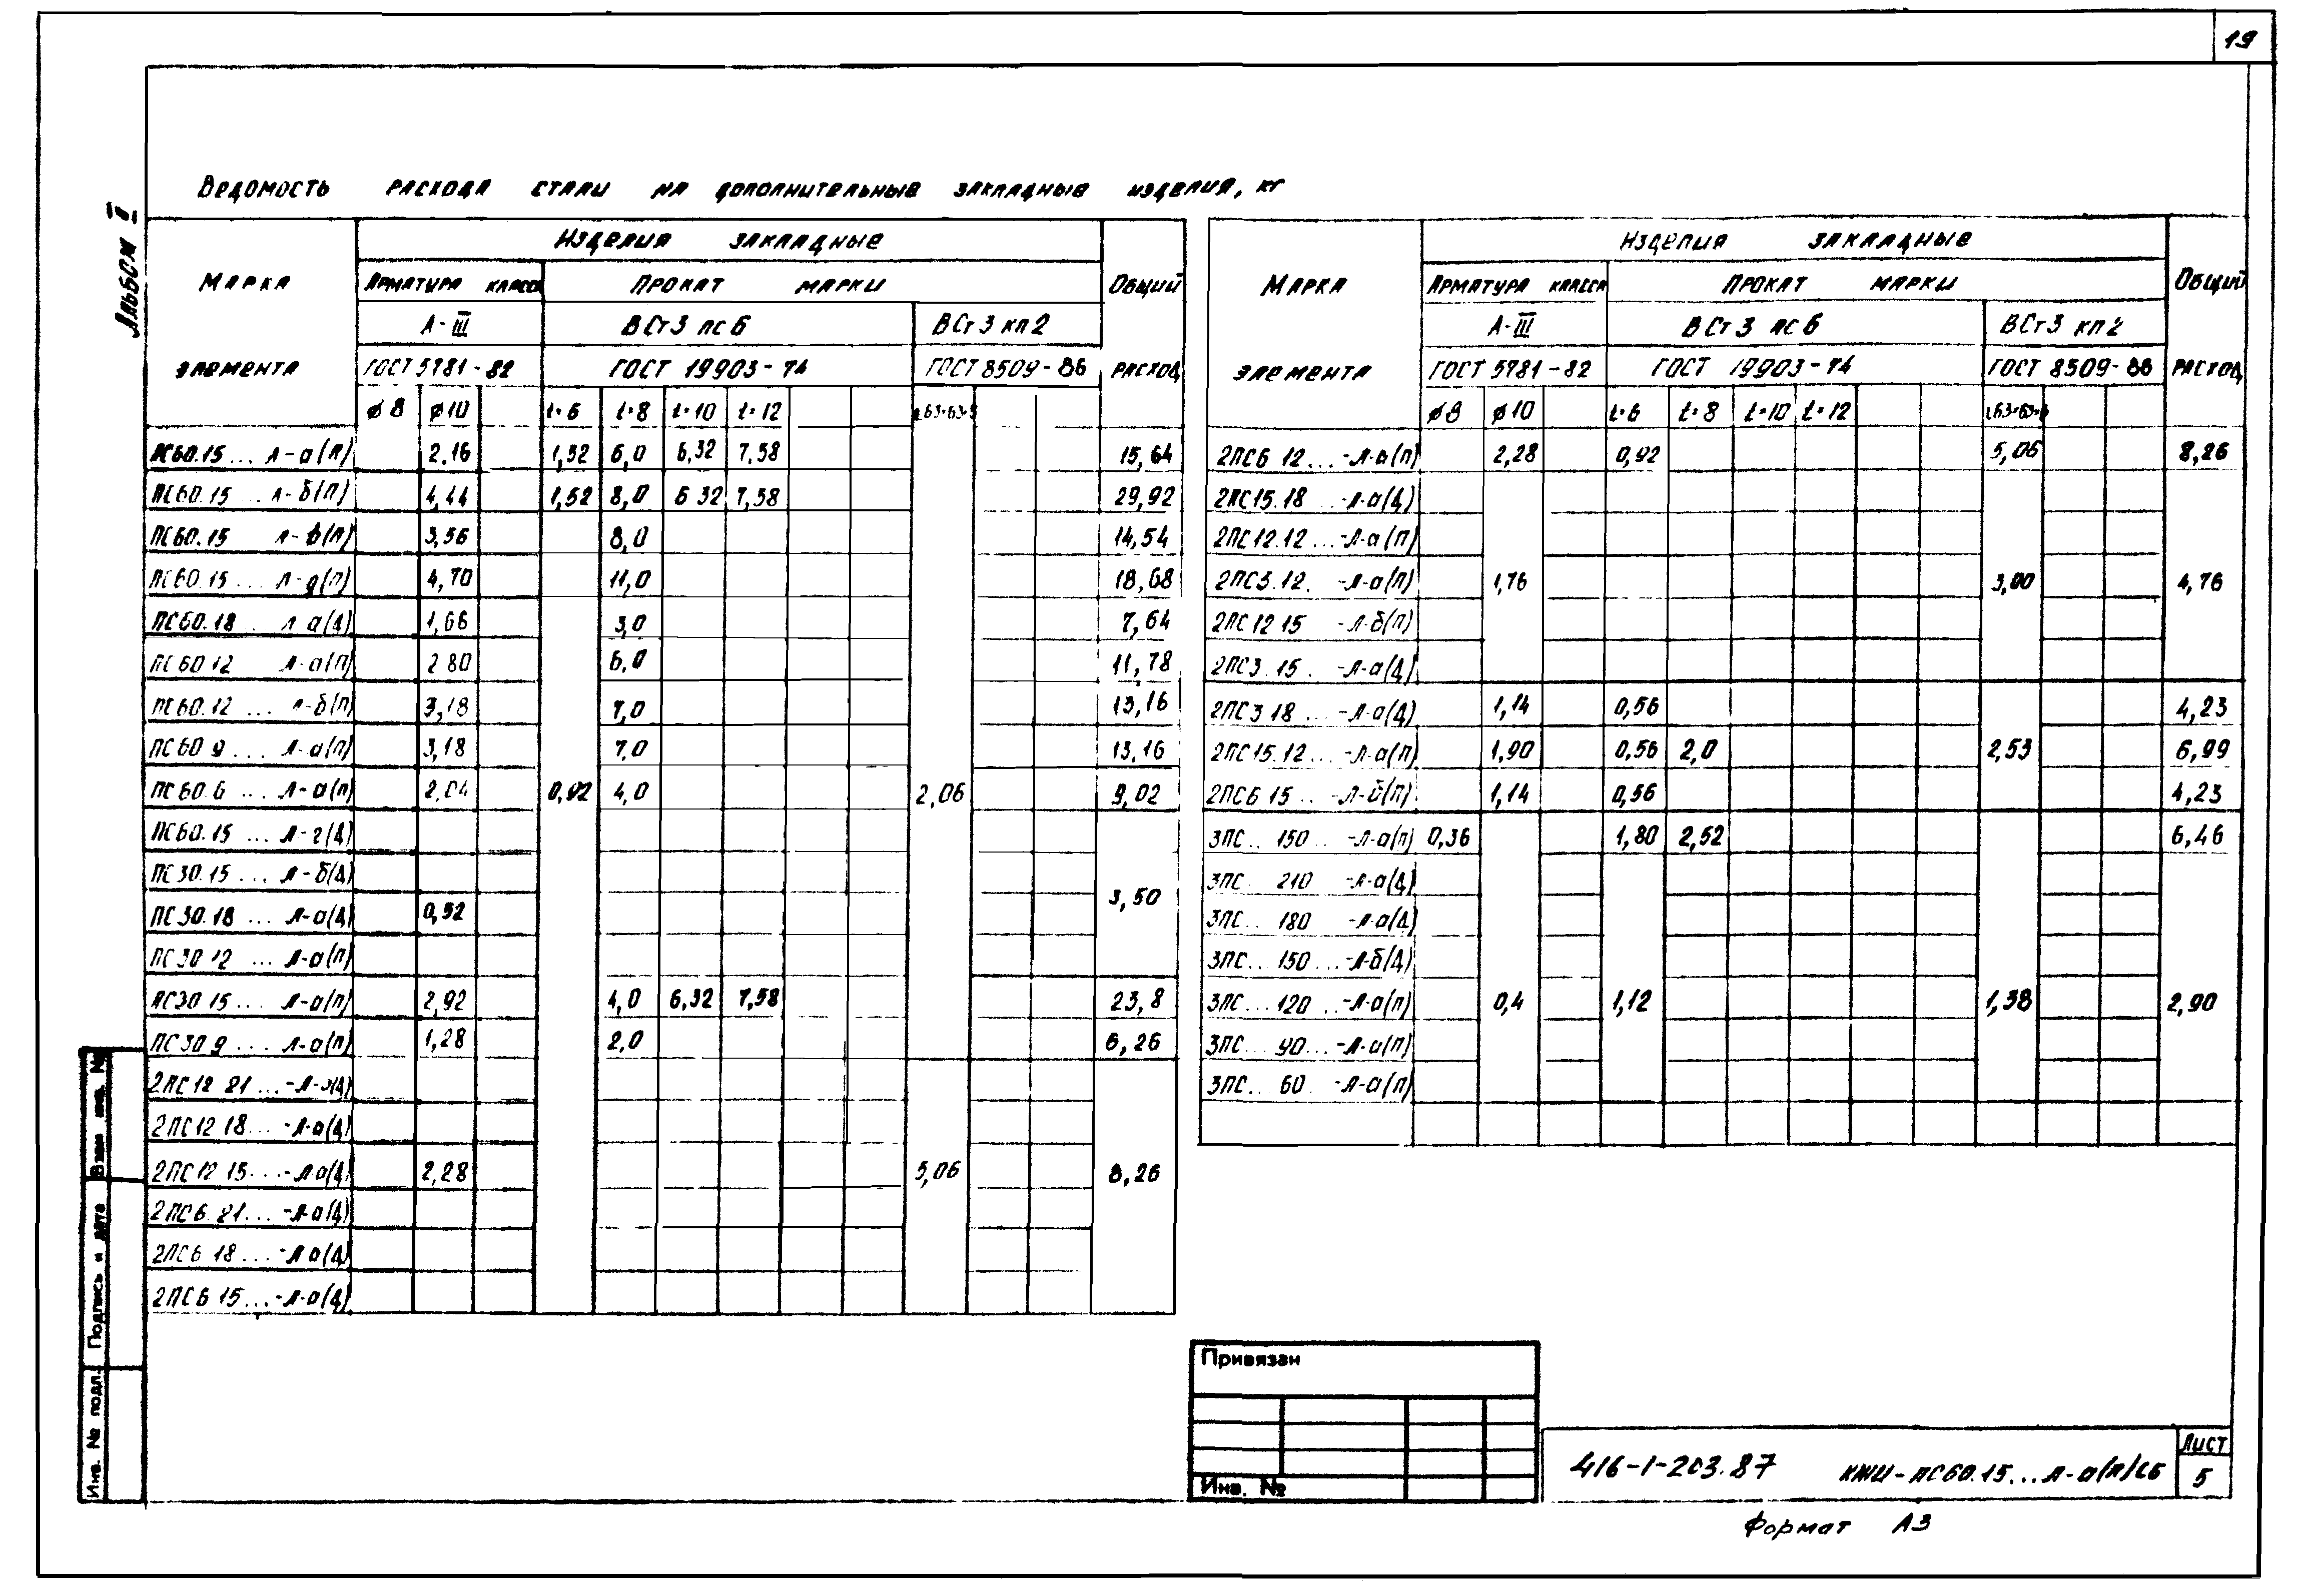 19
Альбом II
Ведомость расхода стали на дополнительные закладные изделия, кг
Марка элемента
Изделия закладные
Общий расход
Арматура класса
Прокат марки
А-III
ВСт3 пс6
ВСт3 кп2
ГОСТ 5781-82
ГОСТ 19903-74
ГОСТ 8509-86
ø8 ø10 t=6 t=8 t=10 t=12 L63×63×5
ПС60.15... л-а(п) 2,16 1,52 6,0 6,32 7,58 15,64
ПС60.15 ... л-б(п) 4,44 1,52 8,0 6 32 7,58 29,92
ПС60.15 л-в(п) 3,56 8,0 14,54
ПС60.15... л-д(п) 4,70 11,0 18,68
ПС60.18 ... л а(д) 1,66 3,0 7,64
ПС60 12 л-а(п) 2 80 6,0 11,78
ПС60.12 ... л-б(п) 3,18 7,0 13,16
ПС60 9 ... л-а(п) 3,18 7,0 13,16
ПС60.6 ... л-а(п) 2,04 0,92 4,0 2,06 9,02
ПС60.15 ... л-г(д)
ПС30.15 ... л-б(д)
ПС30.18 ... л-а(д) 0,52 3,50
ПС30 12 ... л-а(п)
ПС30 15 ... л-а(п) 2,92 4,0 6,32 7,58 23,8
ПС30 9 ... л-а(п) 1,28 2,0 6,26
2ПС12 21 ...-л-а(д)
2ПС12 18...-л-а(д)
2ПС12 15...-л-а(д) 2,28 5,06 8,26
2ПС6 21...-л-а(д)
2ПС6 18...-л а(д)
2ПС6 15...-л-а(д)
Марка элемента
Изделия закладные
Общий расход
Арматура класса
Прокат марки
А-III
ВСт3 пс6
ВСт3 кп2
ГОСТ 5781-82
ГОСТ 19903-74
ГОСТ 8509-86
ø8 ø10 t=6 t=8 t=10 t=12 L63×63×5
2ПС6 12...-л-а(п) 2,28 0,92 5,06 8,26
2ПС15.18 -л-а(д)
2ПС12.12 ...-л-а(п)
2ПС3.12. -л-а(п) 1,76 3,00 4,76
2ПС12 15 -л-б(п)
2ПС3.15 . -л-а(д)
2ПС3 18 ... -л-а(д) 1,14 0,56 4,23
2ПС15.12...-л-а(п) 1,90 0,56 2,0 2,53 6,99
2ПС6 15 .. -л-б(п) 1,14 0,56 4,23
3ПС.. 150 .. -л-а(п) 0,36 1,80 2,52 6,46
3ПС. 210 -л-а(д)
3ПС.. 180 -л-а(д)
3ПС... 150 ...-л-б(д)
3ПС... 120 ..-л-а(п) 0,4 1,12 1,38 2,90
3ПС... 90...-л-а(п)
3ПС.. 60. -л-а(п)
Взам инв. №
Подпись и дата
Инв. № подл.
Привязан
Инв. №
416-1-203.87
КЖИ-ПС60.15...л-а(п)СБ
Лист
5
Формат А3